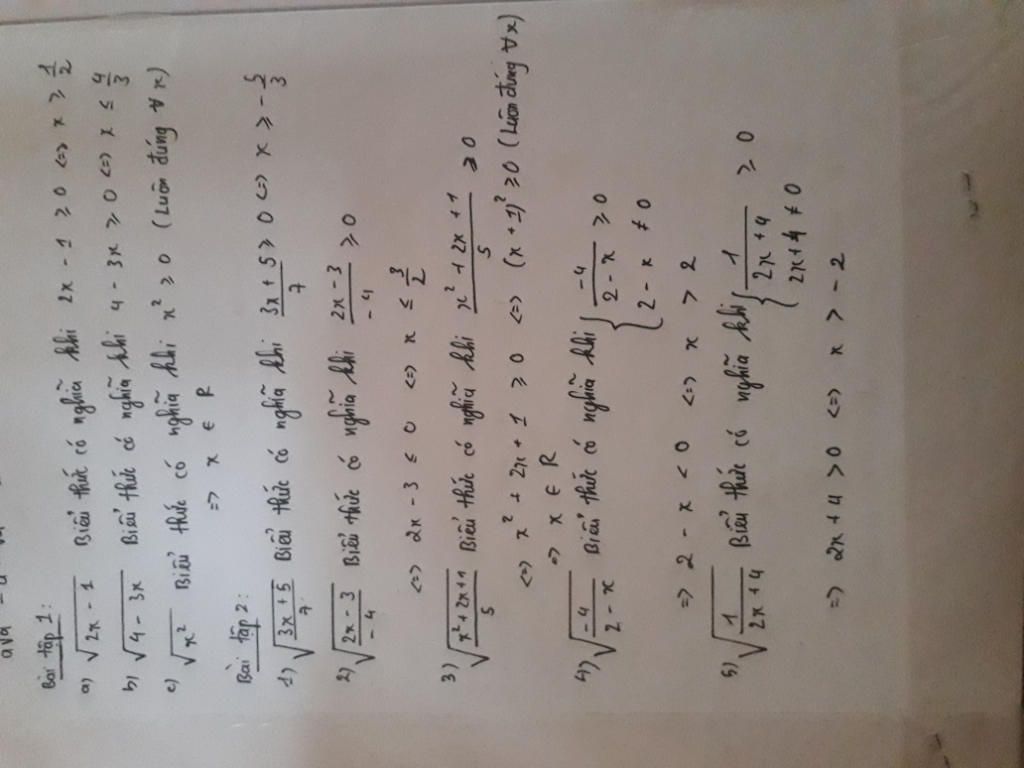 Bài tập 1:
a) √(2x - 1) Biểu thức có nghĩa khi 2x - 1 ≥ 0 <=> x ≥ 1/2
b) √(4 - 3x) Biểu thức có nghĩa khi 4 - 3x ≥ 0 <=> x ≤ 4/3
c) √(x²) Biểu thức có nghĩa khi x² ≥ 0 (Luôn đúng ∀ x)
=> x ∈ R
Bài tập 2:
1) √((3x + 5)/7) Biểu thức có nghĩa khi (3x + 5)/7 ≥ 0 <=> x ≥ -5/3
2) √((2x - 3)/-4) Biểu thức có nghĩa khi (2x - 3)/-4 ≥ 0
<=> 2x - 3 ≤ 0 <=> x ≤ 3/2
3) √((x² + 2x + 1)/5) Biểu thức có nghĩa khi (x² + 2x + 1)/5 ≥ 0
<=> x² + 2x + 1 ≥ 0 <=> (x + 1)² ≥ 0 (Luôn đúng ∀ x)
=> x ∈ R
4) √(-4/(2 - x)) Biểu thức có nghĩa khi { -4/(2 - x) ≥ 0
2 - x ≠ 0
=> 2 - x < 0 <=> x > 2
5) √(1/(2x + 4)) Biểu thức có nghĩa khi { 1/(2x + 4) ≥ 0
2x + 4 ≠ 0
=> 2x + 4 > 0 <=> x > -2